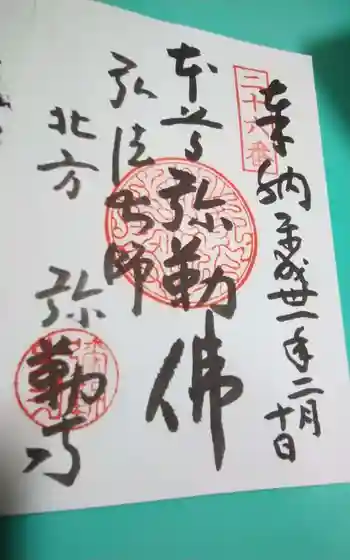 二十六番
奉納 平成丗一年二月十日
本尊 弥勒佛
弘法大師
北方 弥勒寺